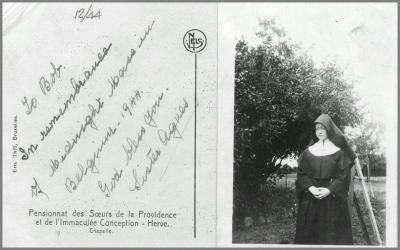 12/44
To Bob.
In remembrance
of Midnight Mass in
Belgium. 1944.
God bless you.
Sister Agnes
NELS
Ern. Thill, Bruxelles.
Pensionnat des Sœurs de la Providence
et de l'Immaculée Conception - Herve.
Chapelle.